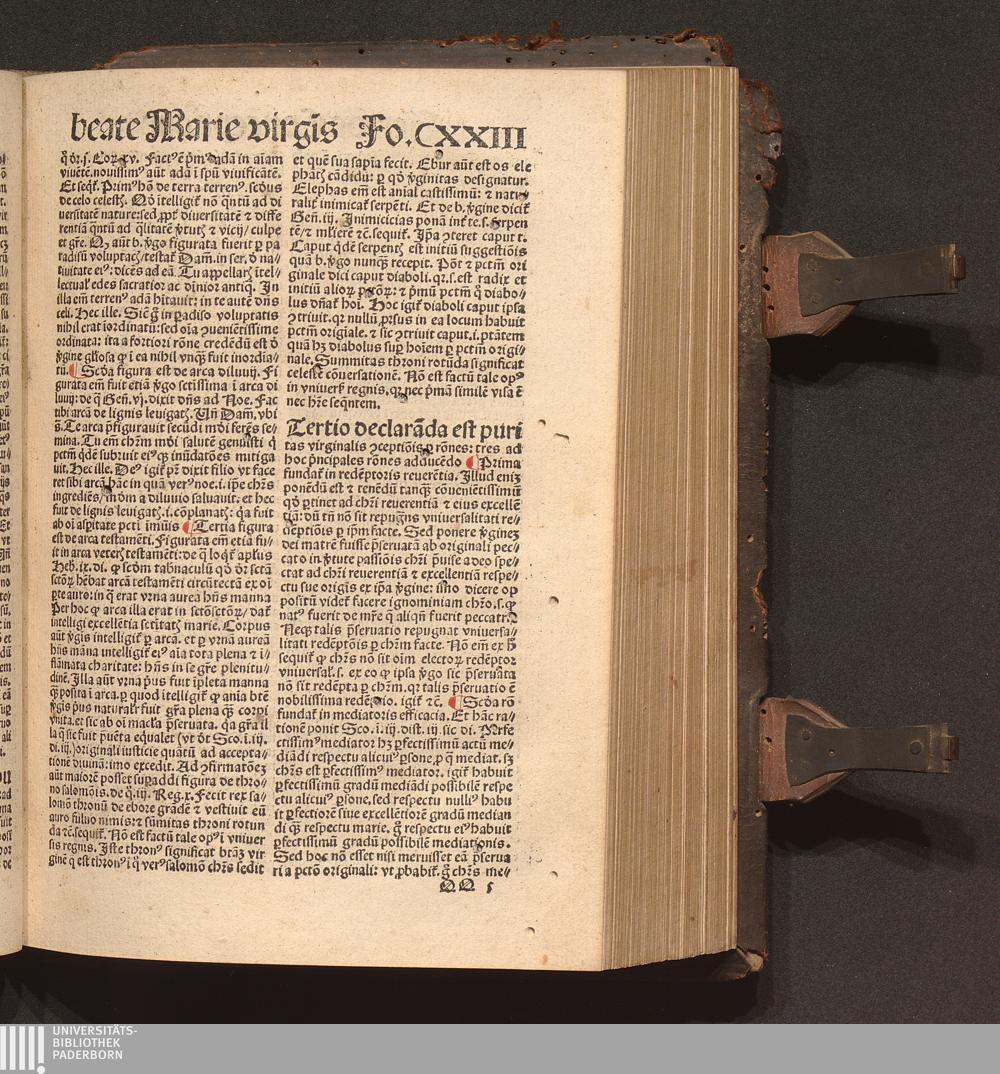 beate Marie virgīs Fo. CXXIII
q̄ dr̄.ꝭ. Coꝝ.xv. Factꝰ ē p̄mꝰ adā in aīam
viuētē. nouissimꝰ aūt adā ī spū viuificātē.
Et seqt̄. Primꝰ hō de terra terrenꝰ. scd̄us
de celo celestꝭ. Qd̄ ītelligit̄ nō q̄ntū ad di
uersitatē nature: sed ꝓpt̄ diuersitatē ⁊ diffe
rentiā q̄ntū ad q̄litatē v̄tutꝭ ⁊ vicij/ culpe
et gr̄e. Qꝫ aūt b. v̄go figurata fuerit ꝑ pa
radisū voluptatꝭ/ testat̄ Dam̄. in ser. d̄ na/
tiuitate eiꝰ: dicēs ad eā. Tu appellarꝭ ītel/
lectual̄ edes sacratior ac diuinior antiq̄. In
illa em̄ terrenꝰ adā hītauit: in te autē dn̄s
celi. Hec ille. Sic̄ g̊ in ꝑadiso voluptatis
nihil erat īordinatū: sed oīa ꝯueniētissime
ordinata: ita a fortiori rōne credēdū est d̄
v̄gine gl̄iosa ꝙ ī ea nihil vnqꝫ fuit inordīa/
tū. ¶ Scd̄a figura est de arca diluuij. Fi
gurata em̄ fuit etiā v̄go sctīssima ī arca di
luuij: de q̄ Gen̄. vj. dixit dn̄s ad Noe. Fac
tibi arcā de lignis leuigatꝭ. Vn̄ Dam̄. vbi
s̄. Te arca p̄figurauit secūdi mūdi ferēs se/
mina. Tu em̄ chr̄m mūdi salutē genuisti q̄
pctm̄ q̄dē subruit eiꝰqꝫ inūdatōes mitiga
uit. Hec ille. Deꝰ igit̄ pr̄ dixit filio vt face
ret sibi arcā hāc in quā verꝰ noe.i. ip̄e chr̄s
ingrediēs/ mūdū a diluuio saluauit. et hec
fuit de lignis leuigatꝭ.i. cōplanatꝭ: q̄a fuit
ab oī aspitate pcti īmūis ¶ Tertia figura
est de arca testamēti. Figurata em̄ etiā fu/
it in arca veterꝭ testamēti: de q̄ loqt̄ apl̄us
Heb. ix. di. ꝙ scd̄m tabnaculū qd̄ dr̄ sctā
sctōꝝ hēbat arcā testamēti circūtectā ex oī
ꝑte auro: in q̄ erat vrna aurea hn̄s manna
Per hoc ꝙ arca illa erat in sctōsctōꝝ/ dat̄
intelligi excellētia sctītatꝭ marie. Corpus
aūt v̄gis intelligit̄ ꝑ arcā. et ꝑ vrnā aureā
hn̄s māna intelligit̄ eiꝰ aīa tota plena ⁊ ī/
flāmata charitate: hn̄s in se gr̄e plenitu/
dinē. Illa aūt vrna p̄us fuit īpleta manna
q̄ꝫ posita ī arca. ꝑ quod ītelligit̄ ꝙ anīa btē
v̄gis p̄us naturalr̄ fuit gr̄a plena q̄ꝫ corpi
vnita. et sic ab oī macl̄a p̄seruata. q̄a gr̄a il
la q̄ sic fuit p̄uēta equalet (vt dt̄ Sco. i. iij.
di. iij.) originali iusticie quātū ad accepta/
tionē diuinā: imo excedit. Ad ꝯfirmatōeꝫ
aūt maiorē posset suꝑaddi figura de thro/
no salomōis. de q̄. iij. Reg. x. Fecit rex sa/
lomō thronū de ebore grādē ⁊ vestiuit eū
auro fuluo nimis: ⁊ sūmitas throni rotun
da ⁊ē. sequit̄. Nō est factū tale opꝰ ī vniuer
sis regnis. Iste thronꝰ significat btāꝫ vir
ginē q̄ est thronꝰ ī q̄ verꝰ salomō chr̄s sedit
et quē sua sapīa fecit. Ebur aūt est os ele
phātꝭ cādidū: ꝑ qd̄ v̄ginitas designatur.
Elephas em̄ est anīal castissimū: ⁊ natu/
ralit̄ inimicat̄ serpēti. Et de b. v̄gine dicit̄
Gen̄. iij. Inimicicias ponā int̄ te. s. serpen
tē/ ⁊ mliērē ⁊ē. sequit̄. Ip̄a ꝯteret caput t.
Caput q̄dē serpentꝭ est initiū suggestiōis
quā b. v̄go nunqꝫ recepit. Pōt ⁊ pctm̄ ori
ginale dici caput diaboli. qꝛ.s. est radix et
initiū alioꝝ pctōꝝ: ⁊ p̄mū pctm̄ q̄ diabo/
lus dn̄at̄ hoī. Hoc igit̄ diaboli caput ipsa
ꝯtriuit. qꝛ nullū ꝓrsus in ea locum habuit
pctm̄ origiale. ⁊ sic ꝯtriuit caput.i. ptātem
quā hꝫ diabolus suꝑ hoīem ꝑ pctm̄ origi/
nale. Summitas throni rotūda significat
celestē cōuersationē. Nō est factū tale opꝰ
in vniuers̄ regnis. qꝛ nec p̄mā similē visa ē
nec hr̄e seqn̄tem.
Tertio declarāda est puri
tas virginalis ꝯceptiōis ꝑ rōnes: tres ad
hoc p̄ncipales rōnes adducēdo ¶ Prima
fundat̄ in redēptoris reuerētia. Illud enīꝫ
ponēdū est ⁊ tenēdū tanqꝫ cōuenientissimū
qd̄ ꝑtinet ad chr̄i reuerentiā ⁊ eius excellē
tiā: dū tn̄ nō sit repugn̄s vniuersalitati re/
dēptiōis ꝑ ip̄m facte. Sed ponere v̄gineꝫ
dei matrē fuisse p̄seruatā ab originali pec/
cato in v̄tute passiōis chr̄i p̄uise adeo spe/
ctat ad chr̄i reuerentiā ⁊ excellentiā respe/
ctu sue origīs ex ip̄a v̄gine: īmo dicere op
positū videt̄ facere ignominiam chr̄o. s. ꝙ
natꝰ fuerit de mr̄e q̄ aliqn̄ fuerit peccatrix
Neqꝫ talis p̄seruatio repugnat vniuersa/
litati redēptōis ꝑ chr̄m facte. Nō em̄ ex h̄
sequit̄ ꝙ chr̄s nō sit oīm electoꝝ redēptor
vniuersal̄. s. ex eo ꝙ ipsa v̄go sic p̄seruata
nō sit redēpta ꝑ chr̄m. qꝛ talis p̄seruatio ē
nobilissima redēptio. igit̄ ⁊ē. ¶ Scd̄a rō
fundat̄ in mediatoris efficacia. Et hāc ra/
tionē ponit Sco. i. iij. dist. iij. sic di. Perfe
ctissimꝰ mediator hꝫ ꝑfectissimū actū me/
diādi respectu alicuiꝰ ꝑsone, ꝓ q̄ mediat. sꝫ
chr̄s est ꝑfectissimꝰ mediator. igit̄ habuit
ꝑfectissimū gradū mediādi possibilē respe
ctu alicuiꝰ ꝑsone. sed respectu nulliꝰ habu
it ꝑfectiorē siue excellētiorē gradū median
di q̄ꝫ respectu marie. g̊ respectu eiꝰ habuit
ꝑfectissimū gradū possibilē mediationis.
Sed hoc nō esset nisi meruisset eā p̄serua
ri a pctō originali: vt ꝓbabit̄. g̊ chr̄s me/
QQ
UNIVERSITÄTS-
BIBLIOTHEK
PADERBORN